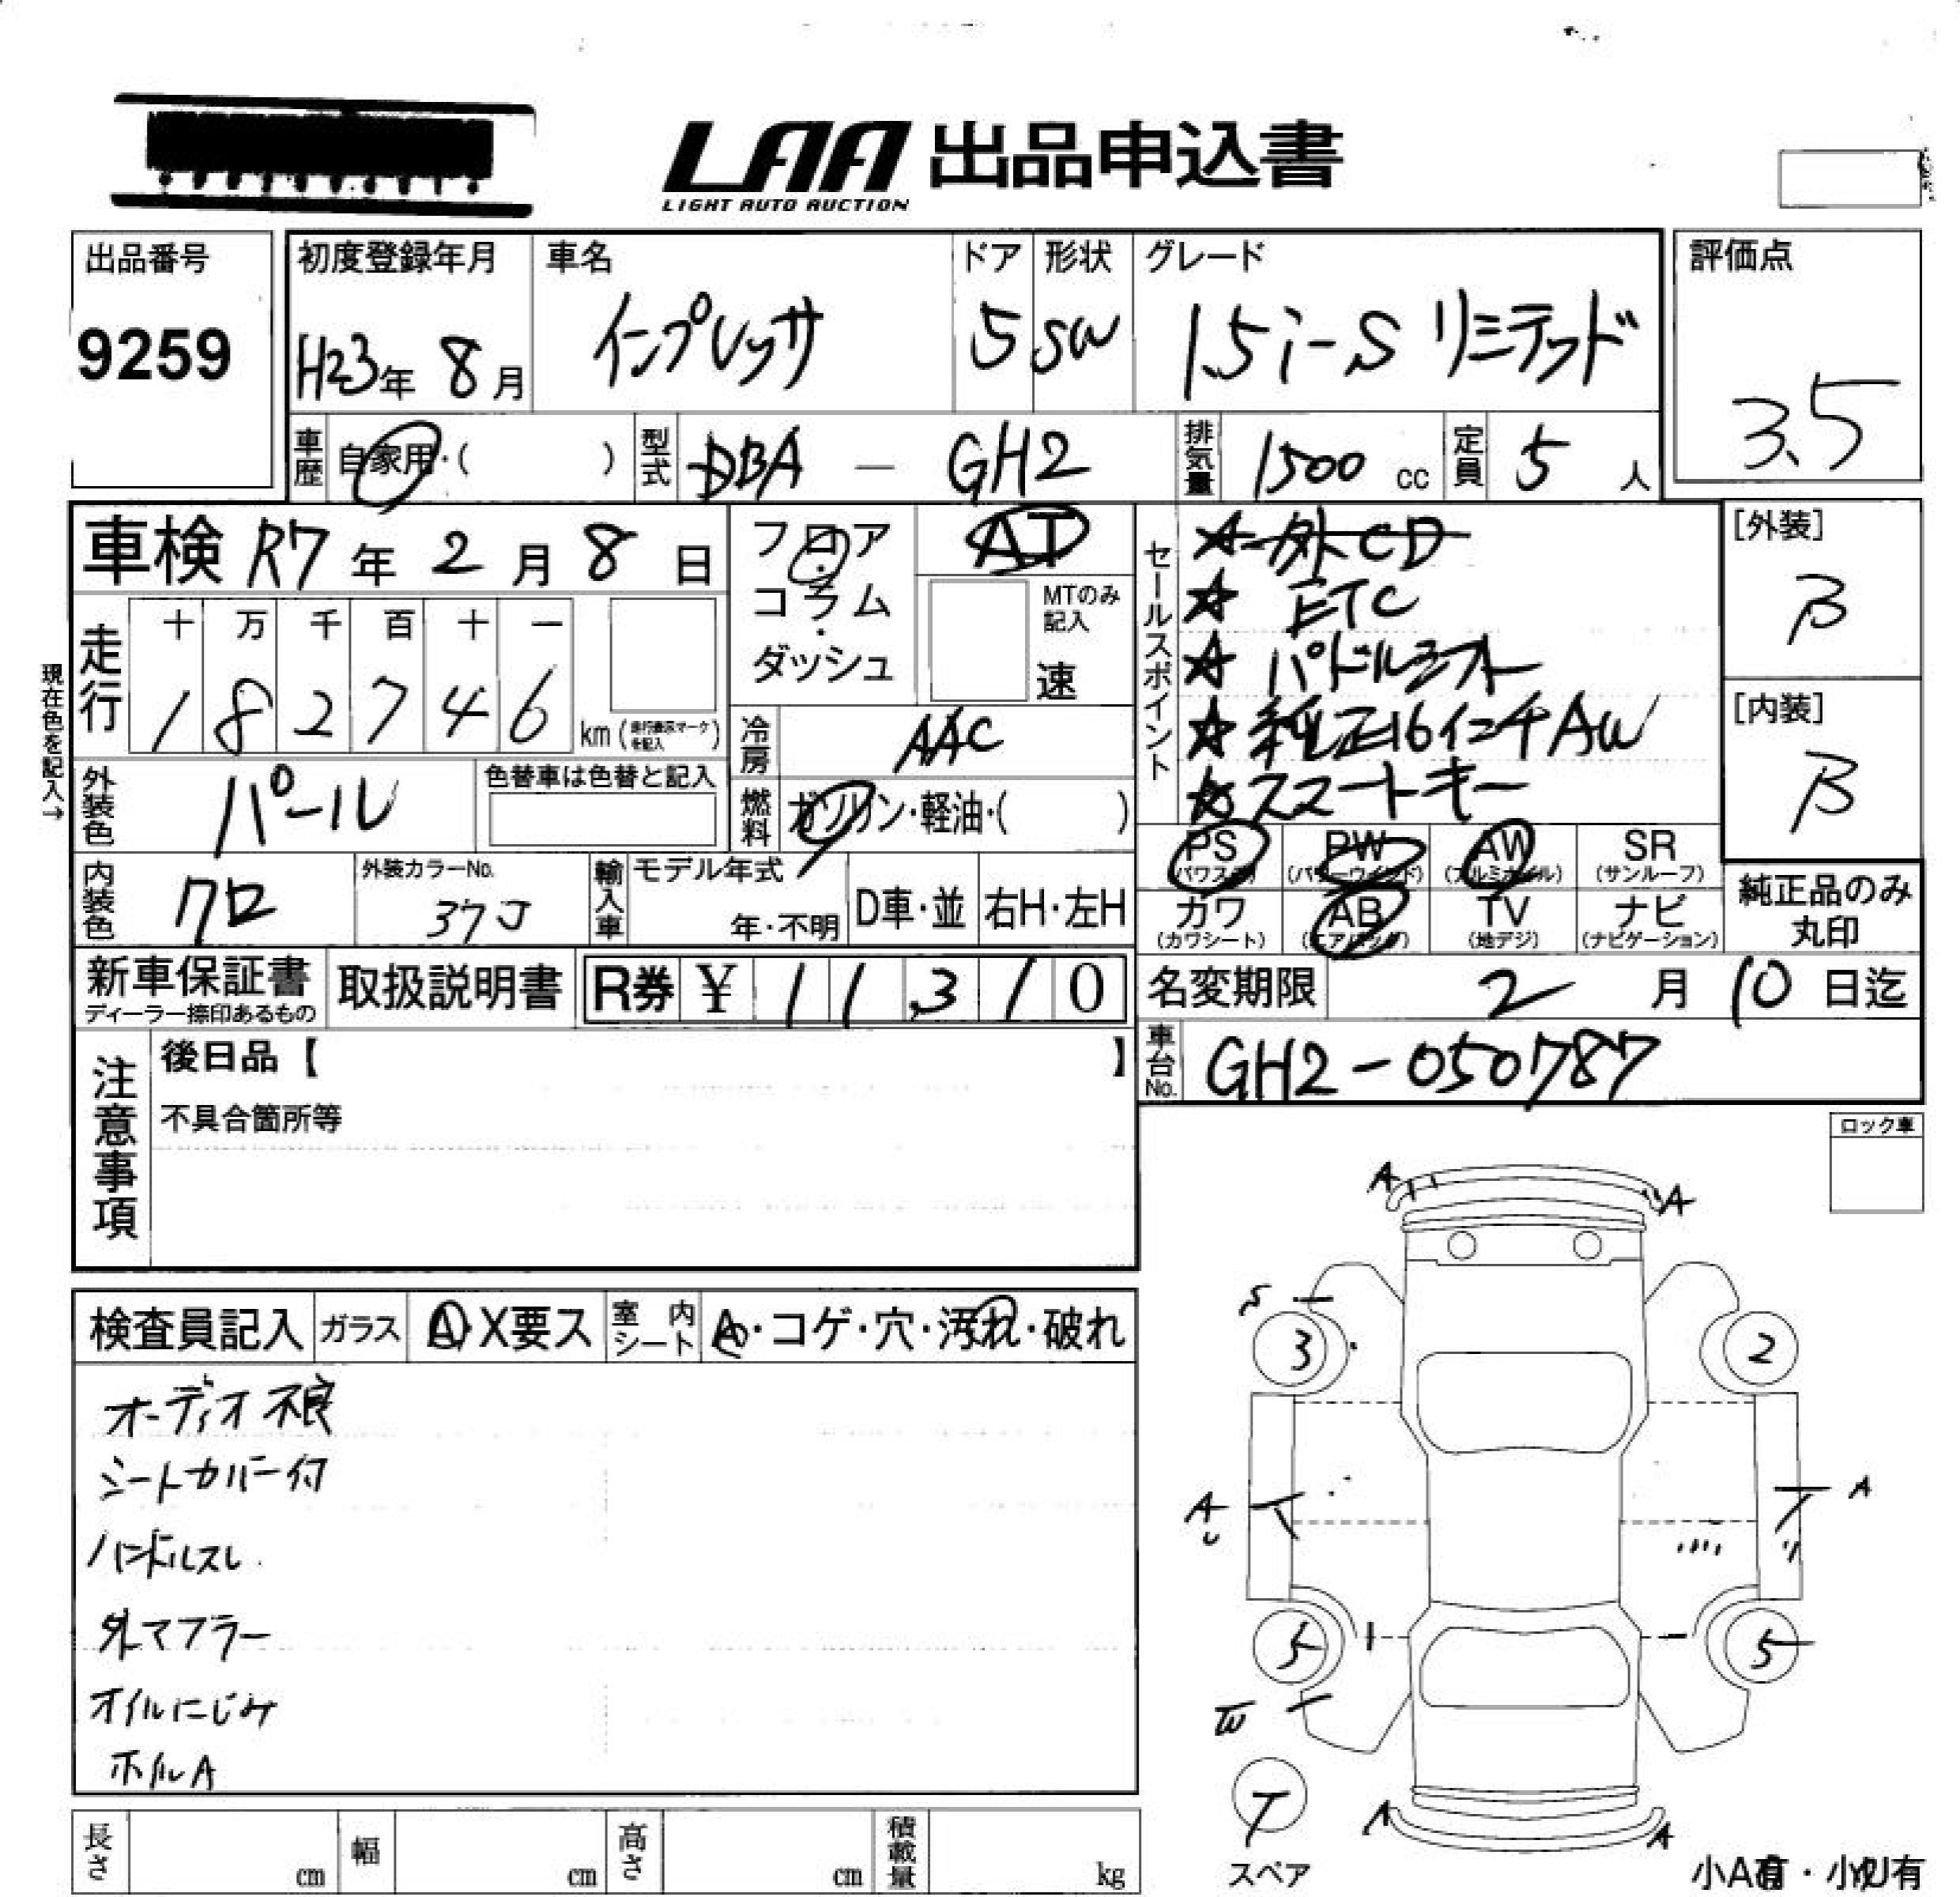 LAA 出品申込書
LIGHT AUTO AUCTION
出品番号
9259
初度登録年月
H23年 8月
車名
インプレッサ
ドア
5
形状
SW
グレード
1.5i-S リミテッド
評価点
3.5
車歴 自家用・( )
型式 DBA - GH2
排気量 1500 cc
定員 5 人
車検 R7年 2月 8日
フロア・コラム・ダッシュ
AT
MTのみ記入
速
セールスポイント
☆ 外CD
☆ ETC
☆ パドルシフト
☆ 純正16インチAW
☆ スマートキー
[外装]
B
[内装]
B
現在色を記入→
走行
十 万 千 百 十 一
1 8 2 7 4 6 km(走行表示マークを記入)
冷房 AAC
外装色 パール
色替車は色替と記入
燃料 ガソリン・軽油・( )
PS (パワステ) PW (パワーウインド) AW (アルミホイル) SR (サンルーフ)
カワ (カワシート) AB (エアバッグ) TV (地デジ) ナビ (ナビゲーション)
純正品のみ丸印
内装色 クロ
外装カラーNo.
37J
輸入車 モデル年式 年・不明 D車・並 右H・左H
新車保証書
ディーラー捺印あるもの
取扱説明書
R券 ¥ 1 1 3 1 0
名変期限 2月 10日迄
車台No. GH2-050787
注意事項
後日品【 】
不具合箇所等
ロック車
検査員記入 ガラス A・X要ス 室内シート A・コゲ・穴・汚れ・破れ
オーディオ不良
シートカバー付
ハンドルスレ
外マフラー
オイルにじみ
ホイルA
A A
S
3 2
A A
5 5
W
T
スペア
A A
小A有・小U有
長さ cm 幅 cm 高さ cm 積載量 kg